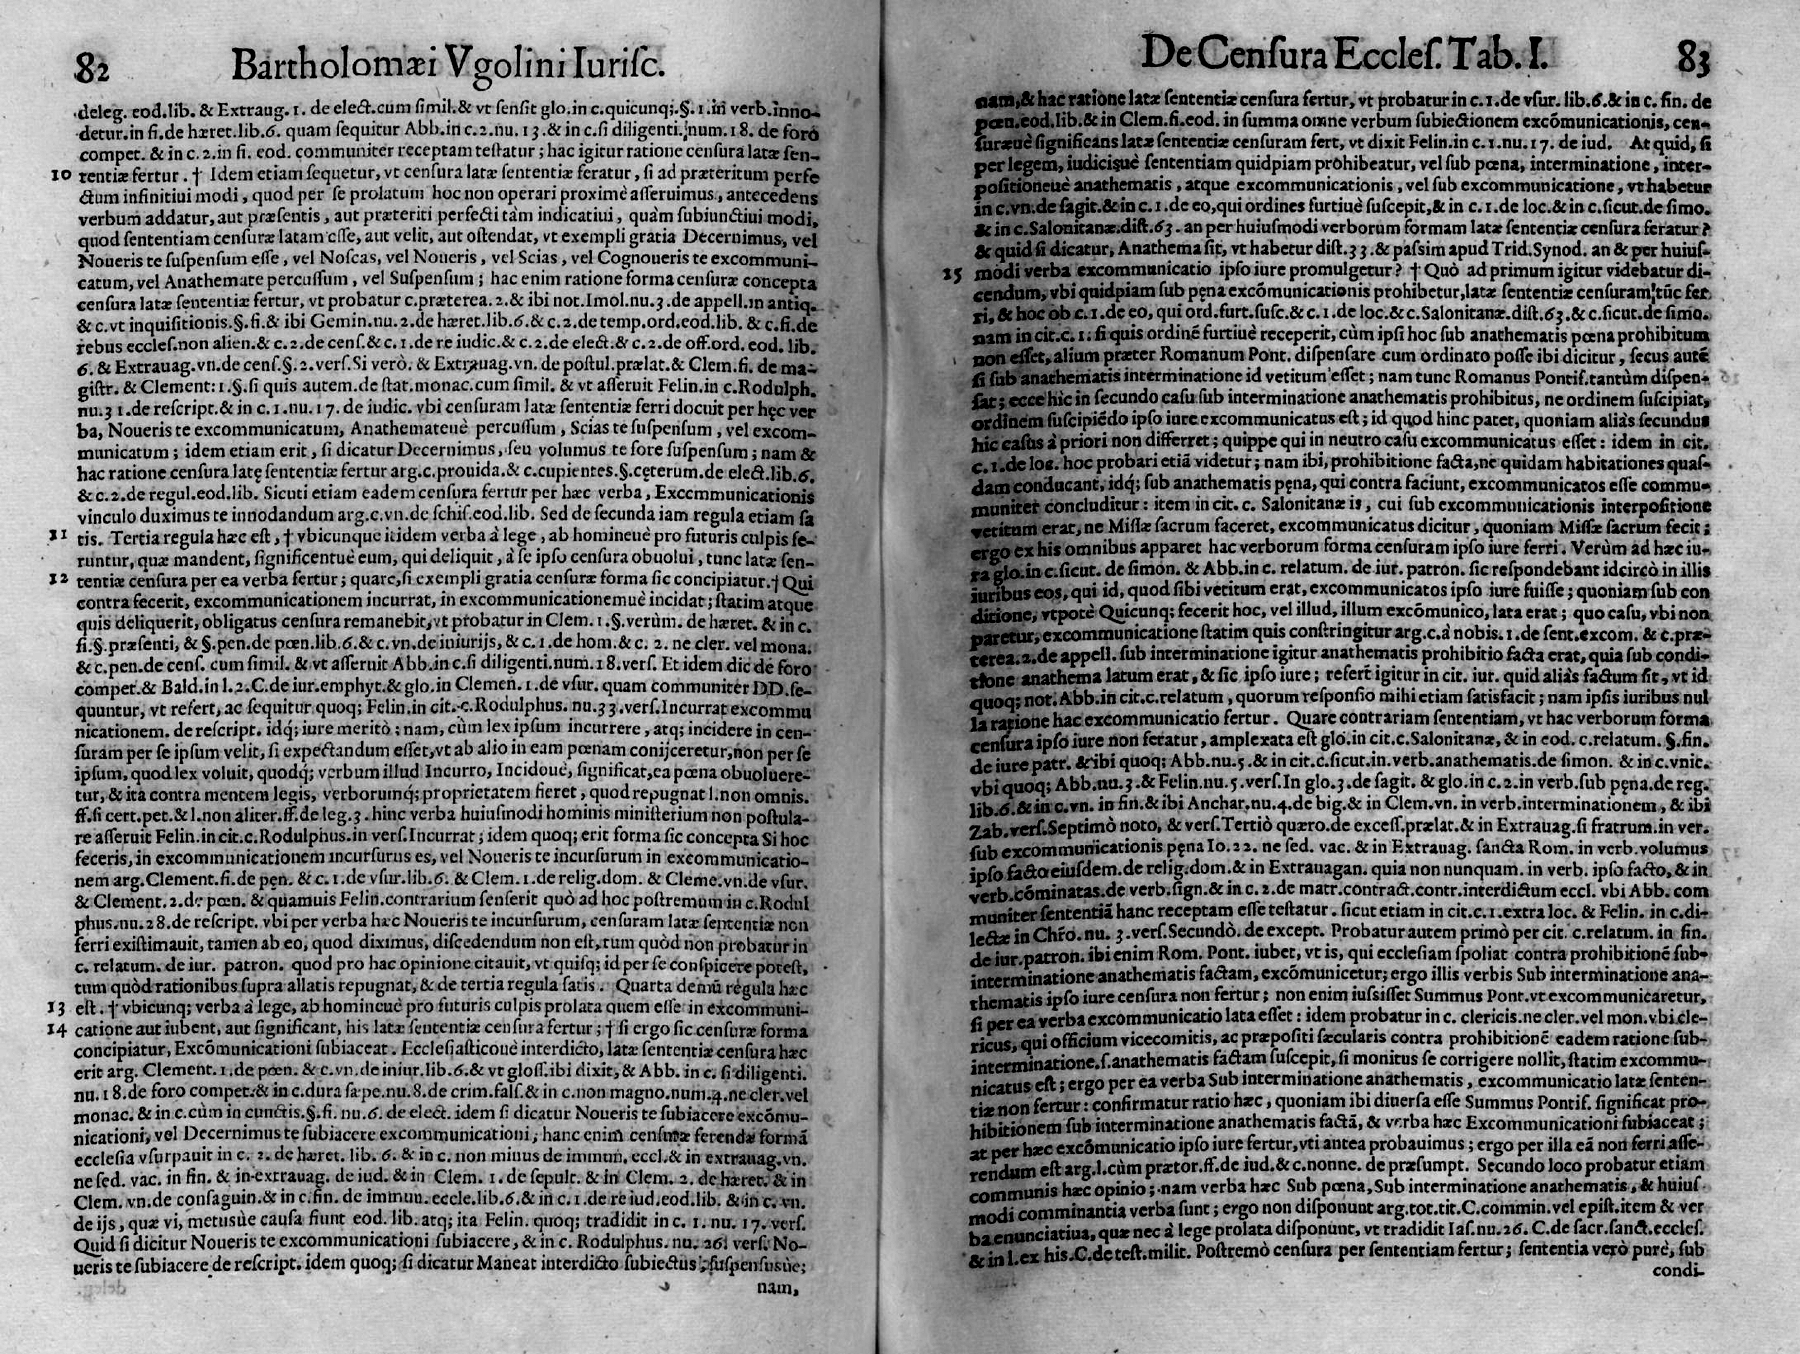 82 Bartholomæi Vgolini Iurisc.
deleg. eod. lib. & Extraug. 1. de elect. cum simil. & vt sensit glo. in c. quicunq;. §. 1. in verb. inno-
detur. in fi. de hæret. lib. 6. quam sequitur Abb. in c. 2. nu. 13. & in c. si diligenti. num. 18. de foro
compet. & in c. 2. in fi. eod. communiter receptam testatur; hac igitur ratione censura latæ sen-
10 tentiæ fertur. † Idem etiam sequetur, vt censura latæ sententiæ feratur, si ad præteritum perfe
ctum infinitiui modi, quod per se prolatum hoc non operari proximè asseruimus, antecedens
verbum addatur, aut præsentis, aut præteriti perfecti tàm indicatiui, quàm subiunctiui modi,
quod sententiam censuræ latam esse, aut velit, aut ostendat, vt exempli gratia Decernimus, vel
Noueris te suspensum esse, vel Noscas, vel Noueris, vel Scias, vel Cognoueris te excommuni-
catum, vel Anathemate percussum, vel Suspensum; hac enim ratione forma censuræ concepta
censura latæ sententiæ fertur, vt probatur c. præterea. 2. & ibi not. Imol. nu. 3. de appell. in antiq.
& c. vt inquisitionis. §. fi. & ibi Gemin. nu. 2. de hæret. lib. 6. & c. 2. de temp. ord. eod. lib. & c. fi. de
rebus eccles. non alien. & c. 2. de cens. & c. 1. de re iudic. & c. 2. de elect. & c. 2. de off. ord. eod. lib.
6. & Extrauag. vn. de cens. §. 2. vers. Si verò. & Extrauag. vn. de postul. prælat. & Clem. fi. de ma-
gistr. & Clement. 1. §. si quis autem. de stat. monac. cum simil. & vt asseruit Felin. in c. Rodulph.
nu. 31. de rescript. & in c. 1. nu. 17. de iudic. vbi censuram latæ sententiæ ferri docuit per hęc ver
ba, Noueris te excommunicatum, Anathemateuè percussum, Scias te suspensum, vel excom-
municatum; idem etiam erit, si dicatur Decernimus, seu volumus te fore suspensum; nam &
hac ratione censura latę sententiæ fertur arg. c. prouida. & c. cupientes. §. cęterum. de elect. lib. 6.
& c. 2. de regul. eod. lib. Sicuti etiam eadem censura fertur per hæc verba, Excommunicationis
vinculo duximus te innodandum arg. c. vn. de schis. eod. lib. Sed de secunda iam regula etiam sa
11 tis. Tertia regula hæc est, † vbicunque itidem verba à lege, ab homineuè pro futuris culpis fe-
runtur, quæ mandent, significentuè eum, qui deliquit, à se ipso censura obuolui, tunc latæ sen-
12 tentiæ censura per ea verba fertur; quare, si exempli gratia censuræ forma sic concipiatur. † Qui
contra fecerit, excommunicationem incurrat, in excommunicationemuè incidat; statim atque
quis deliquerit, obligatus censura remanebit, vt probatur in Clem. 1. §. verùm. de hæret. & in c.
fi. §. præsenti, & §. pen. de pœn. lib. 6. & c. vn. de iniurijs, & c. 1. de hom. & c. 2. ne cler. vel mona.
& c. pen. de cens. cum simil. & vt asseruit Abb. in c. si diligenti. num. 18. vers. Et idem dic de foro
compet. & Bald. in l. 2. C. de iur. emphyt. & glo. in Clemen. 1. de vsur. quam communiter DD. se-
quuntur, vt refert, ac sequitur quoq; Felin. in cit. c. Rodulphus. nu. 33. vers. Incurrat excommu
nicationem. de rescript. idq́; iure meritò: nam, cùm lex ipsum incurrere, atq; incidere in cen-
suram per se ipsum velit, si expectandum esset, vt ab alio in eam pœnam conijceretur, non per se
ipsum, quod lex voluit, quodq́; verbum illud Incurro, Incidouè, significat, ea pœna obuoluere-
tur, & ita contra mentem legis, verborumq́; proprietatem fieret, quod repugnat l. non omnis.
ff. si cert. pet. & l. non aliter. ff. de leg. 3. hinc verba huiusmodi hominis ministerium non postula-
re asseruit Felin. in cit. c. Rodulphus. in vers. Incurrat; idem quoq; erit forma sic concepta Si hoc
feceris, in excommunicationem incursurus es, vel Noueris te incursurum in excommunicatio-
nem arg. Clement. fi. de pęn. & c. 1. de vsur. lib. 6. & Clem. 1. de relig. dom. & Cleme. vn. de vsur.
& Clement. 2. de pœn. & quamuis Felin. contrarium senserit quò ad hoc postremum in c. Rodul
phus. nu. 28. de rescript. vbi per verba hæc Noueris te incursurum, censuram latæ sententiæ non
ferri existimauit, tamen ab eo, quod diximus, discedendum non est, tum quòd non probatur in
c. relatum. de iur. patron. quod pro hac opinione citauit, vt quisq; id per se conspicere potest,
tum quòd rationibus supra allatis repugnat, & de tertia regula satis. Quarta demũ regula hæc
13 est. † vbicunq; verba à lege, ab homineuè pro futuris culpis prolata quem esse in excommuni-
14 catione aut iubent, aut significant, his latæ sententiæ censura fertur; † si ergo sic censuræ forma
concipiatur, Excõmunicationi subiaceat. Ecclesiasticouè interdicto, latæ sententiæ censura hæc
erit arg. Clement. 1. de pœn. & c. vn. de iniur. lib. 6. & vt gloss. ibi dixit, & Abb. in c. si diligenti.
nu. 18. de foro compet. & in c. dura sæpe. nu. 8. de crim. fals. & in c. non magno. num. 4. ne cler. vel
monac. & in c. cùm in cunctis. §. fi. nu. 6. de elect. idem si dicatur Noueris te subiacere excõmu-
nicationi, vel Decernimus te subiacere excommunicationi, hanc enim censuræ ferendæ formã
ecclesia vsurpauit in c. 2. de hæret. lib. 6. & in c. non minus de immun. eccl. & in extrauag. vn.
ne sed. vac. in fin. & in extrauag. de iud. & in Clem. 1. de sepult. & in Clem. 2. de hæret. & in
Clem. vn. de consaguin. & in c. fin. de immun. eccle. lib. 6. & in c. 1. de re iud. eod. lib. & in c. vn.
de ijs, quæ vi, metusùe causa fiunt eod. lib. atq; ita Felin. quoq; tradidit in c. 1. nu. 17. vers.
Quid si dicitur Noueris te excommunicationi subiacere, & in c. Rodulphus. nu. 26. vers. No-
ueris te subiacere de rescript. idem quoq; si dicatur Maneat interdicto subiectus, suspensusùe;
nam,
De Censura Eccles. Tab. I. 83
nam, & hac ratione latæ sententiæ censura fertur, vt probatur in c. 1. de vsur. lib. 6. & in c. fin. de
pœn. eod. lib. & in Clem. fi. eod. in summa omne verbum subiectionem excõmunicationis, cen-
suræuè significans latæ sententiæ censuram fert, vt dixit Felin. in c. 1. nu. 17. de iud. At quid, si
per legem, iudicisuè sententiam quidpiam prohibeatur, vel sub pœna, interminatione, inter-
positioneuè anathematis, atque excommunicationis, vel sub excommunicatione, vt habetur
in c. vn. de sagit. & in c. 1. de eo, qui ordines furtiuè suscepit, & in c. 1. de loc. & in c. sicut. de simo.
& in c. Salonitanæ. dist. 63. an per huiusmodi verborum formam latæ sententiæ censura feratur?
& quid si dicatur, Anathema sit, vt habetur dist. 33. & passim apud Trid. Synod. an & per huius-
15 modi verba excommunicatio ipso iure promulgetur? † Quò ad primum igitur videbatur di-
cendum, vbi quidpiam sub pęna excõmunicationis prohibetur, latæ sententiæ censuram tũc fer
ri, & hoc ob c. 1. de eo, qui ord. furt. susc. & c. 1. de loc. & c. Salonitanæ. dist. 63. & c. sicut. de simo.
nam in cit. c. 1. si quis ordinẽ furtiuè receperit, cùm ipsi hoc sub anathematis pœna prohibitum
non esset, alium præter Romanum Pont. dispensare cum ordinato posse ibi dicitur, secus autẽ
si sub anathematis interminatione id vetitum esset; nam tunc Romanus Pontif. tantùm dispen-
sat; ecce hic in secundo casu sub interminatione anathematis prohibitus, ne ordinem suscipiat,
ordinem suscipiẽdo ipso iure excommunicatus est; id quod hinc patet, quoniam aliàs secundus
hic casus à priori non differret; quippe qui in neutro casu excommunicatus esset: idem in cit.
c. 1. de loc. hoc probari etiã videtur; nam ibi, prohibitione facta, ne quidam habitationes quas-
dam conducant, idq́; sub anathematis pęna, qui contra faciunt, excommunicatos esse commu-
niter concluditur: item in cit. c. Salonitanæ is, cui sub excommunicationis interpositione
vetitum erat, ne Missæ sacrum faceret, excommunicatus dicitur, quoniam Missæ sacrum fecit;
ergo ex his omnibus apparet hac verborum forma censuram ipso iure ferri. Verùm ad hæc iu-
ra glo. in c. sicut. de simon. & Abb. in c. relatum. de iur. patron. sic respondebant idcircò in illis
iuribus eos, qui id, quod sibi vetitum erat, excommunicatos ipso iure fuisse; quoniam sub con
ditione, vtpotè Quicunq; fecerit hoc, vel illud, illum excõmunico, lata erat; quo casu, vbi non
paretur, excommunicatione statim quis constringitur arg. c. à nobis. 1. de sent. excom. & c. præ-
terea. 2. de appell. sub interminatione igitur anathematis prohibitio facta erat, quia sub condi-
tione anathema latum erat, & sic ipso iure; refert igitur in cit. iur. quid aliàs factum sit, vt id
quoq; not. Abb. in cit. c. relatum, quorum responsio mihi etiam satisfacit; nam ipsis iuribus nul
la ratione hac excommunicatio fertur. Quare contrariam sententiam, vt hac verborum forma
censura ipso iure non feratur, amplexata est glo. in cit. c. Salonitanæ, & in eod. c. relatum. §. fin.
de iure patr. & ibi quoq; Abb. nu. 5. & in cit. c. sicut. in. verb. anathematis. de simon. & in c. vnic.
vbi quoq; Abb. nu. 3. & Felin. nu. 5. vers. In glo. 3. de sagit. & glo. in c. 2. in verb. sub pęna. de reg.
lib. 6. & in c. vn. in fin. & ibi Anchar. nu. 4. de big. & in Clem. vn. in verb. interminationem, & ibi
Zab. vers. Septimò noto, & vers. Tertiò quæro. de excess. prælat. & in Extrauag. si fratrum. in ver.
sub excommunicationis pęna Io. 22. ne sed. vac. & in Extrauag. sancta Rom. in verb. volumus
ipso facto eiusdem. de relig. dom. & in Extrauagan. quia non nunquam. in verb. ipso facto, & in
verb. cõminatas. de verb. sign. & in c. 2. de matr. contract. contr. interdictum eccl. vbi Abb. com
muniter sententiã hanc receptam esse testatur. sicut etiam in cit. c. 1. extra loc. & Felin. in c. di-
lectæ in Chr̃o. nu. 3. vers. Secundò. de except. Probatur autem primò per cit. c. relatum. in fin.
de iur. patron. ibi enim Rom. Pont. iubet, vt is, qui ecclesiam spoliat contra prohibitionẽ sub-
interminatione anathematis factam, excõmunicetur; ergo illis verbis Sub interminatione ana-
thematis ipso iure censura non fertur; non enim iussisset Summus Pont. vt excommunicaretur,
si per ea verba excommunicatio lata esset: idem probatur in c. clericis. ne cler. vel mon. vbi cle-
ricus, qui officium vicecomitis, ac præpositi sæcularis contra prohibitionẽ eadem ratione sub-
interminatione. s. anathematis factam suscepit, si monitus se corrigere nollit, statim excommu-
nicatus est; ergo per ea verba Sub interminatione anathematis, excommunicatio latæ senten-
tiæ non fertur: confirmatur ratio hæc, quoniam ibi diuersa esse Summus Pontif. significat pro-
hibitionem sub interminatione anathematis factã, & verba hæc Excommunicationi subiaceat;
at per hæc excõmunicatio ipso iure fertur, vti antea probauimus; ergo per illa eã non ferri asse-
rendum est arg. l. cùm prætor. ff. de iud. & c. nonne. de præsumpt. Secundo loco probatur etiam
communis hæc opinio; nam verba hæc Sub pœna, Sub interminatione anathematis, & huius-
modi comminantia verba sunt; ergo non disponunt arg. tot. tit. C. commin. vel epist. item & ver
ba enunciatiua, quæ nec à lege prolata disponunt, vt tradidit Ias. nu. 26. C. de sacr. sanct. eccles.
& in l. ex his. C. de test. milit. Postremò censura per sententiam fertur; sententia verò purè, sub
condi-